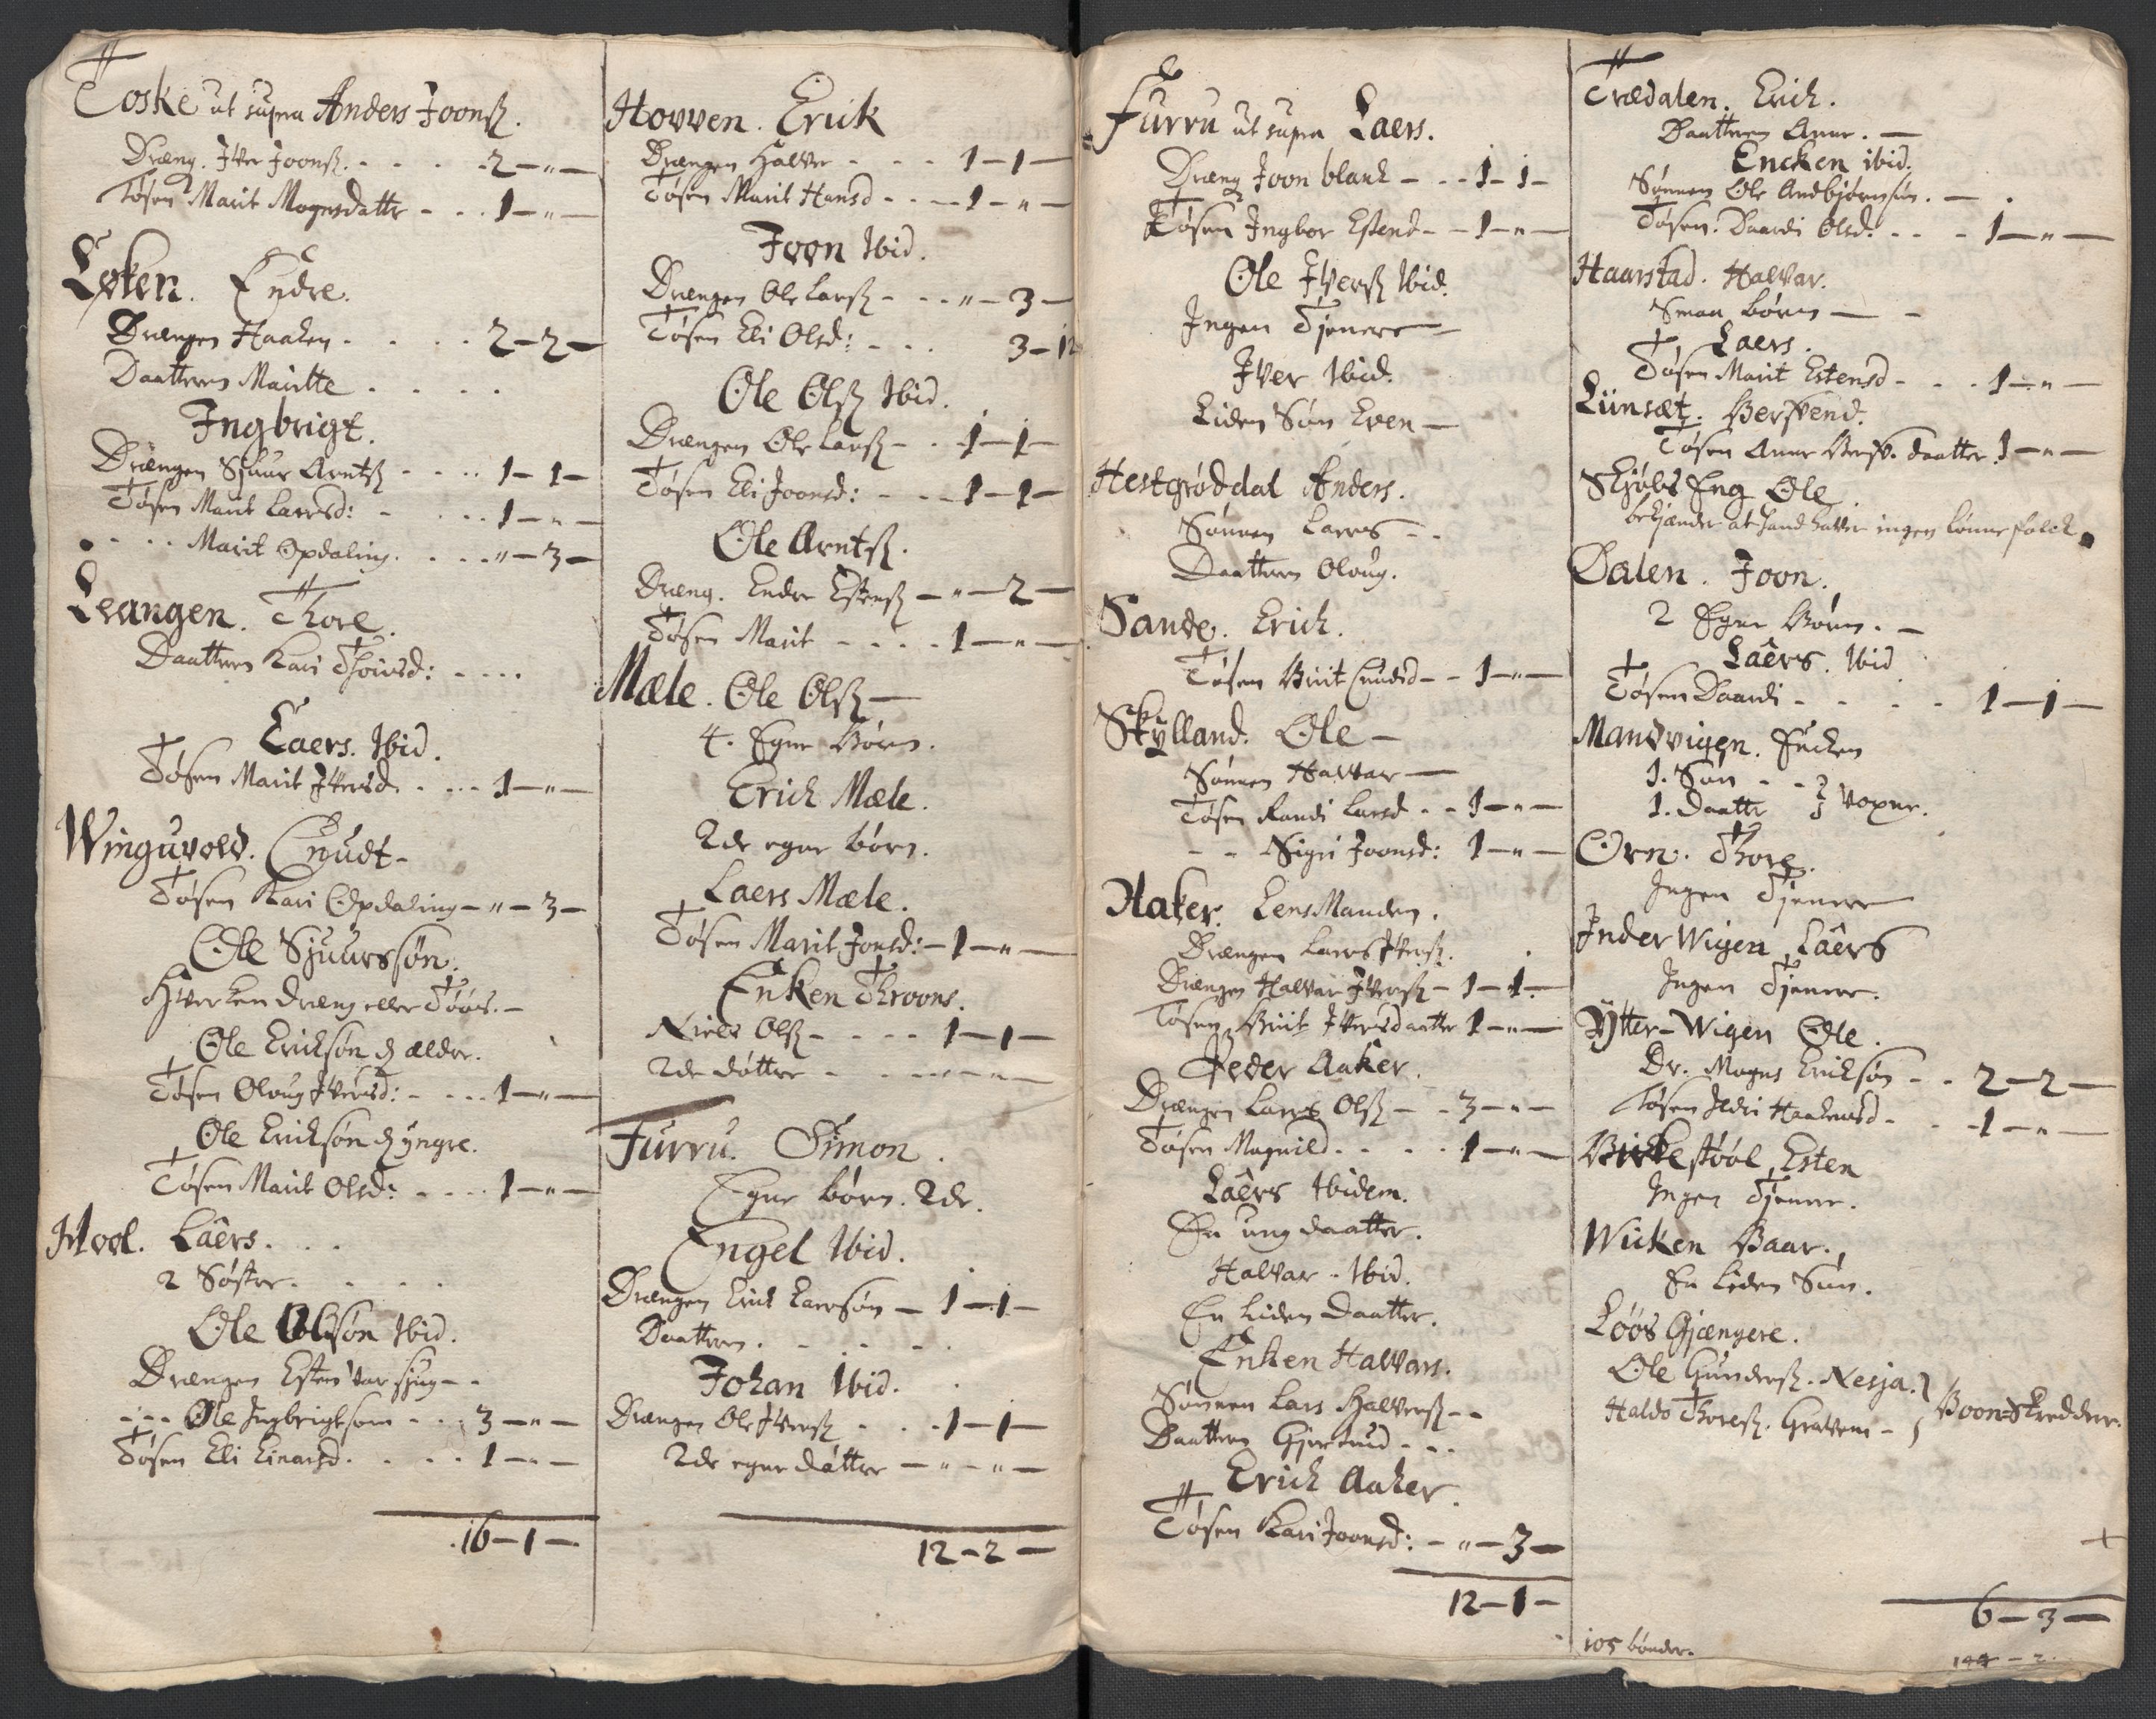 Toske ut supra Anders Joonsz.
Dræng. Iver Joonsz. - - - - 2 - " -
Tøsen Marit Mognsdattr - - - 1 - " -
Løken. Endre.
Drængen Haaken - - - - 2 - 2 -
Daatteren Maritte - - - -
Ingbrigt.
Drængen Sjuur Arntsz - - - - 1 - 1 -
Tøsen Marit Larsd: - - - - 1 - " -
- - - - Marit Opdaling. - - - " - 3 -
Leangen. Thore.
Daatteren Kari Thorisd: - - - -
Laers. Ibid.
Tøsen Marit Iversd. - - - 1 - " -
Winguvold. Cnudt -
Tøsen Kari Opdaling - " - 3 -
Ole Sjuurssøn.
Hverken dræng eller Tøøs. -
Ole Erickson d ældre.
Tøsen Oloug Iversd: - - - 1 - " -
Ole Ericksøn d yngre.
Tøsen Marit Olsd: - - - - 1 - " -
Hool. Laers. - -
2 Søstre. - - - -
Ole Olssøn Ibid.
Drængen Esten var siug - -
- - - Ole Ingbrigtsøn - - - 3 - " -
Tøsen Eli Einarsd. - - - - 1 - " -
16 - 1 -
Hovven. Erick
Drængen Halvor - - - - 1 - 1 -
Tøsen Marit Hansd - - - 1 - " -
Joon Ibid.
Drængen Ole Larsz - - - " - 3 -
Tøsen Eli Olsd: - - - 3 - 12
Ole Olsz Ibid.
Drængen Ole Larsz - - 1 - 1 -
Tøsen Eli Joonsd: - - - 1 - 1 -
Ole Arntsz.
Dræng. Endre Estensz - " - 2 -
Tøsen Marit - - - - 1 - " -
Mæle. Ole Olsz -
4. Egne Børn.
Erich Mæle.
2de egne børn.
Laers Mæle.
Tøsen Marit Jonsd: - 1 - " -
Enken Throons.
Niels Olsz - - - - 1 - 1 -
2de døttre - - - - - -
Furru. Simon.
Egne børn. 2de.
Engel Ibid.
Drængen Erick Larssøn - 1 - 1 -
Daatteren. - - - -
Johan Ibid.
Drængen Ole Iversz - - - 1 - 1 -
2de egne døttre - " - " -
12 - 2 -
Furru ut supra Laers.
Dræng Joon blank - - - 1 - 1 -
Tøsen Ingbor Estend - - 1 - " -
Ole Iversz Ibid.
Ingen Tjenere -
Iver Ibid.
Liden Søn Even -
Hestgrøddal Anders.
Sønnen Larrs - -
Daatteren Oloug.
Sande. Erich.
Tøsen Birit Cnudsd - - 1 - " -
Skylland. Ole -
Sønnen Halvar -
Tøsen Randi Larsd - - 1 - " -
- - Sigri Joonsd: 1 - " -
Haker. Lensmanden.
Drængen Larrs Iversz.
Drængen Halvar Iversz - 1 - 1 -
Tøsen Birit Iversdaatter 1 - " -
Peder Aaker.
Drængen Larrs Olsz - - 3 - " -
Tøsen Magnild - - - - 1 - " -
Laers Ibidem.
En ung daatter.
Halvar - Ibid.
En liden daatter.
Enken Halvars.
Sønnen Lars Halversz - -
Daatteren Gjertrud - - -
Erich Aaker.
Tøsen Kari Joonsd: - " - 3 -
12 - 1 -
Trædalen. Erich.
Daatteren Anne. -
Encken ibid.
Sønnen Ole Andbjørnsøn. -
Tøsen. Daardi Olsd: - - - 1 - " -
Haarstad. Halvar.
Smaa børn - -
Laers.
Tøsen Marit Estensd - - - 1 - " -
Liinsæt. Berssvend.
Tøsen Anne Berss. daatter. 1 - " -
Skjøls Eng Ole.
bekjænder at hand haver ingen lønne folck
Dalen. Joon.
2 Egne Børn. -
Laers. Ibid
Tøsen Daardi - - - - 1 - 1 -
Mandvigen. Encken
1. Søn - - }
1. daatter } voxne.
Orn. Thore.
Ingen Tjenere
Inder Wigen Laers
Ingen Tjenere.
Ytter-Wigen Ole.
Dr. Mogns Ericksøn - - 2 - 2 -
Tøsen Ildri Haakensd - - - 1 - " -
Birkestøøl Esten
Ingen Tjenere.
Wicken Baar.
En liden Søn.
Løøs Gjængere.
Ole Gundersz. Nesja. }
Haldo Thoresz. Gravem - } Boon-Skreddere.
6 - 3 -
105 bønder.